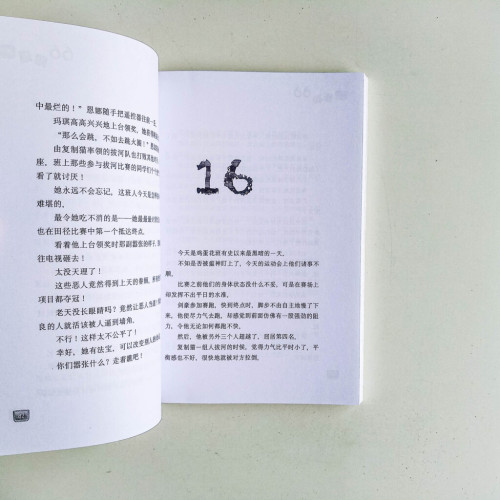 中最烂的！”恩娜随手把遥控器往
玛琪高高兴兴地上台领奖，她
“那么会跳，不如去跳火圈！”
由复制猫率领的拔河队也打败
座，班上那些参与拔河比赛的同学们
看了就讨厌！
她永远不会忘记，这班人今天是怎
难堪的。
最令她吃不消的是——她最最最
也在田径比赛中第一个抵达终点。
看着他上台领奖时那副嚣张的样子，
往电视砸去！
太没天理了！
这些恶人竟然得到上天的眷顾，
项目都夺冠！
老天没长眼睛吗？竟然让恶人当道
良的人就活该被人逼到墙角。
不行！这样太不公平了！
幸好，她有法宝，可以改变别人的
你们嚣张什么？走着瞧吧！
16
今天是鸡蛋花班有史以来最黑暗的一天。
不知是否被瘟神盯上了，今天的运动会上他们诸事不
顺。
比赛之前他们的身体状态没什么不妥，可是在赛场上
却发挥不出平日的水准。
剑豪参加赛跑，快到终点时，脚步不由自主地慢了下
来。他使尽力气去跑，却感觉到前面仿佛有一股强劲的阻
力，令他无论如何都跑不快。
然后，他被另外三个人超越了，屈居第四名。
复制猫一组人拔河的时候，觉得力气比平时小了，平
衡感也不好，很快地就被对方拉倒。